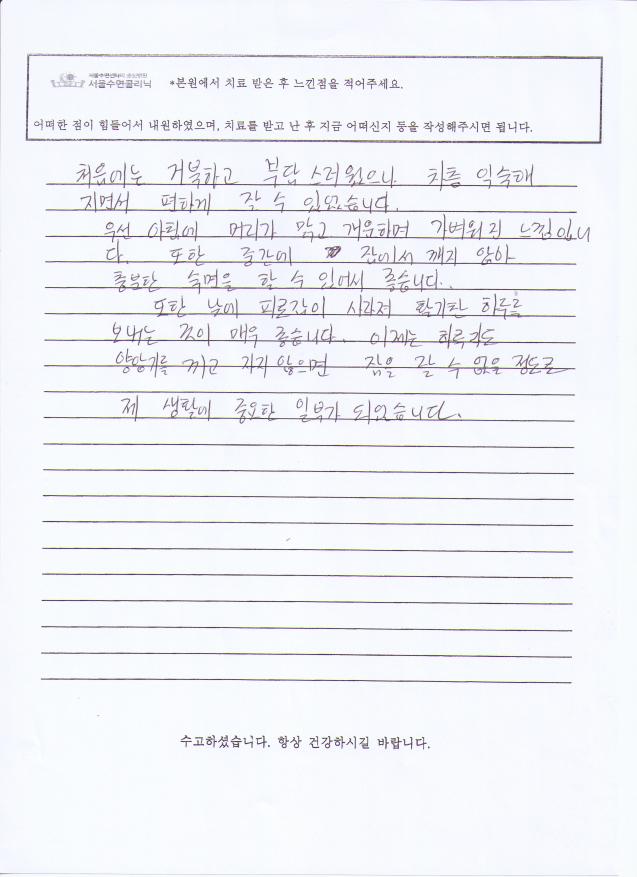 서울수면센터
서울수면클리닉 *본원에서 치료 받은 후 느낀점을 적어주세요.
어떠한 점이 힘들어서 내원하였으며, 치료를 받고 난 후 지금 어떠신지 등을 작성해주시면 됩니다.
처음에는 거북하고 부담 스러웠으나 차츰 익숙해
지면서 편하게 잘 수 있었습니다.
우선 아침에 머리가 맑고 개운하며 가벼워진 느낌입니
다. 또한 중간에 잠에서 깨지 않아
충분한 숙면을 할 수 있어서 좋습니다.
또한 낮에 피로감이 사라져 활기찬 하루를
보내는 것이 매우 좋습니다. 이제는 하루라도
양압기를 끼고 자지 않으면 잠을 잘 수 없을 정도로
제 생활에 중요한 일부가 되었습니다.
수고하셨습니다. 항상 건강하시길 바랍니다.